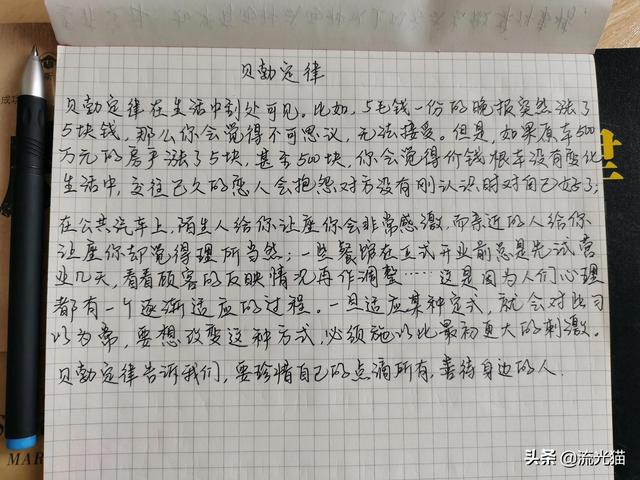 贝勃定律
贝勃定律在生活中到处可见。比如，5毛钱一份的晚报突然涨了
5块钱，那么你会觉得不可思议，无法接受。但是，如果原车500
万元的房子涨了5块，甚至500块，你会觉得价钱根车没有变化
生活中，交往已久的恋人会抱怨对方没有刚认识时对自己好了；
在公共汽车上，陌生人给你让座你会非常感激，而亲近的人给你
让座你却觉得理所当然；一些餐馆在正式开业前总是先试营
业几天，看看顾客的反映情况再作调整……这是因为人们心理
都有一个逐渐适应的过程。一旦适应某种定式，就会对此习
以为常，要想改变这种方式，必须施以比最初更大的刺激。
贝勃定律告诉我们，要珍惜自己的点滴所有，善待身边的人.
MAR
头条 @流光猫